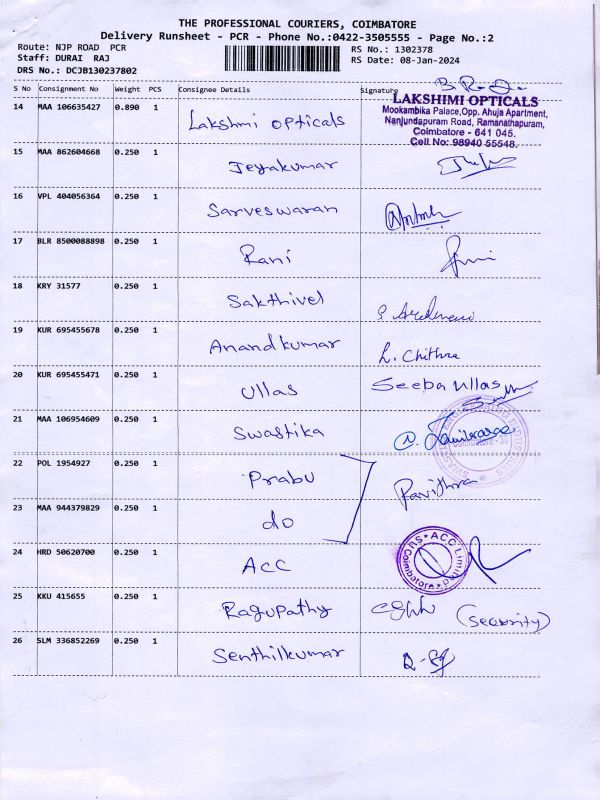 THE PROFESSIONAL COURIERS, COIMBATORE
Delivery Runsheet - PCR - Phone No.:0422-3505555 - Page No.:2
Route: NJP ROAD PCR
RS No.: 1302378
Staff: DURAI RAJ
RS Date: 08-Jan-2024
DRS No.: DCJB130237802
S No Consignment No Weight PCS Consignee Details Signature
14 MAA 106635427 0.890 1 Lakshmi opticals
LAKSHMI OPTICALS
Mookambika Palace,Opp. Ahuja Apartment,
Nanjundapuram Road, Ramanathapuram,
Coimbatore - 641 045.
Cell No: 98940 55548.
15 MAA 862604668 0.250 1 Jeyakumar
16 VPL 404056364 0.250 1 Sarveswaran
17 BLR 8500088898 0.250 1 Rani
18 KRY 31577 0.250 1 Sakthivel
19 KUR 695455678 0.250 1 Anandkumar L. Chithra
20 KUR 695455471 0.250 1 Ullas Seeba Ullas
21 MAA 106954609 0.250 1 Swastika
22 POL 1954927 0.250 1 Prabu Pavithra
23 MAA 944379829 0.250 1 do
24 HRD 50620700 0.250 1 ACC ACC Limited Coimbatore
25 KKU 415655 0.250 1 Ragupathy (Security)
26 SLM 336852269 0.250 1 Senthilkumar